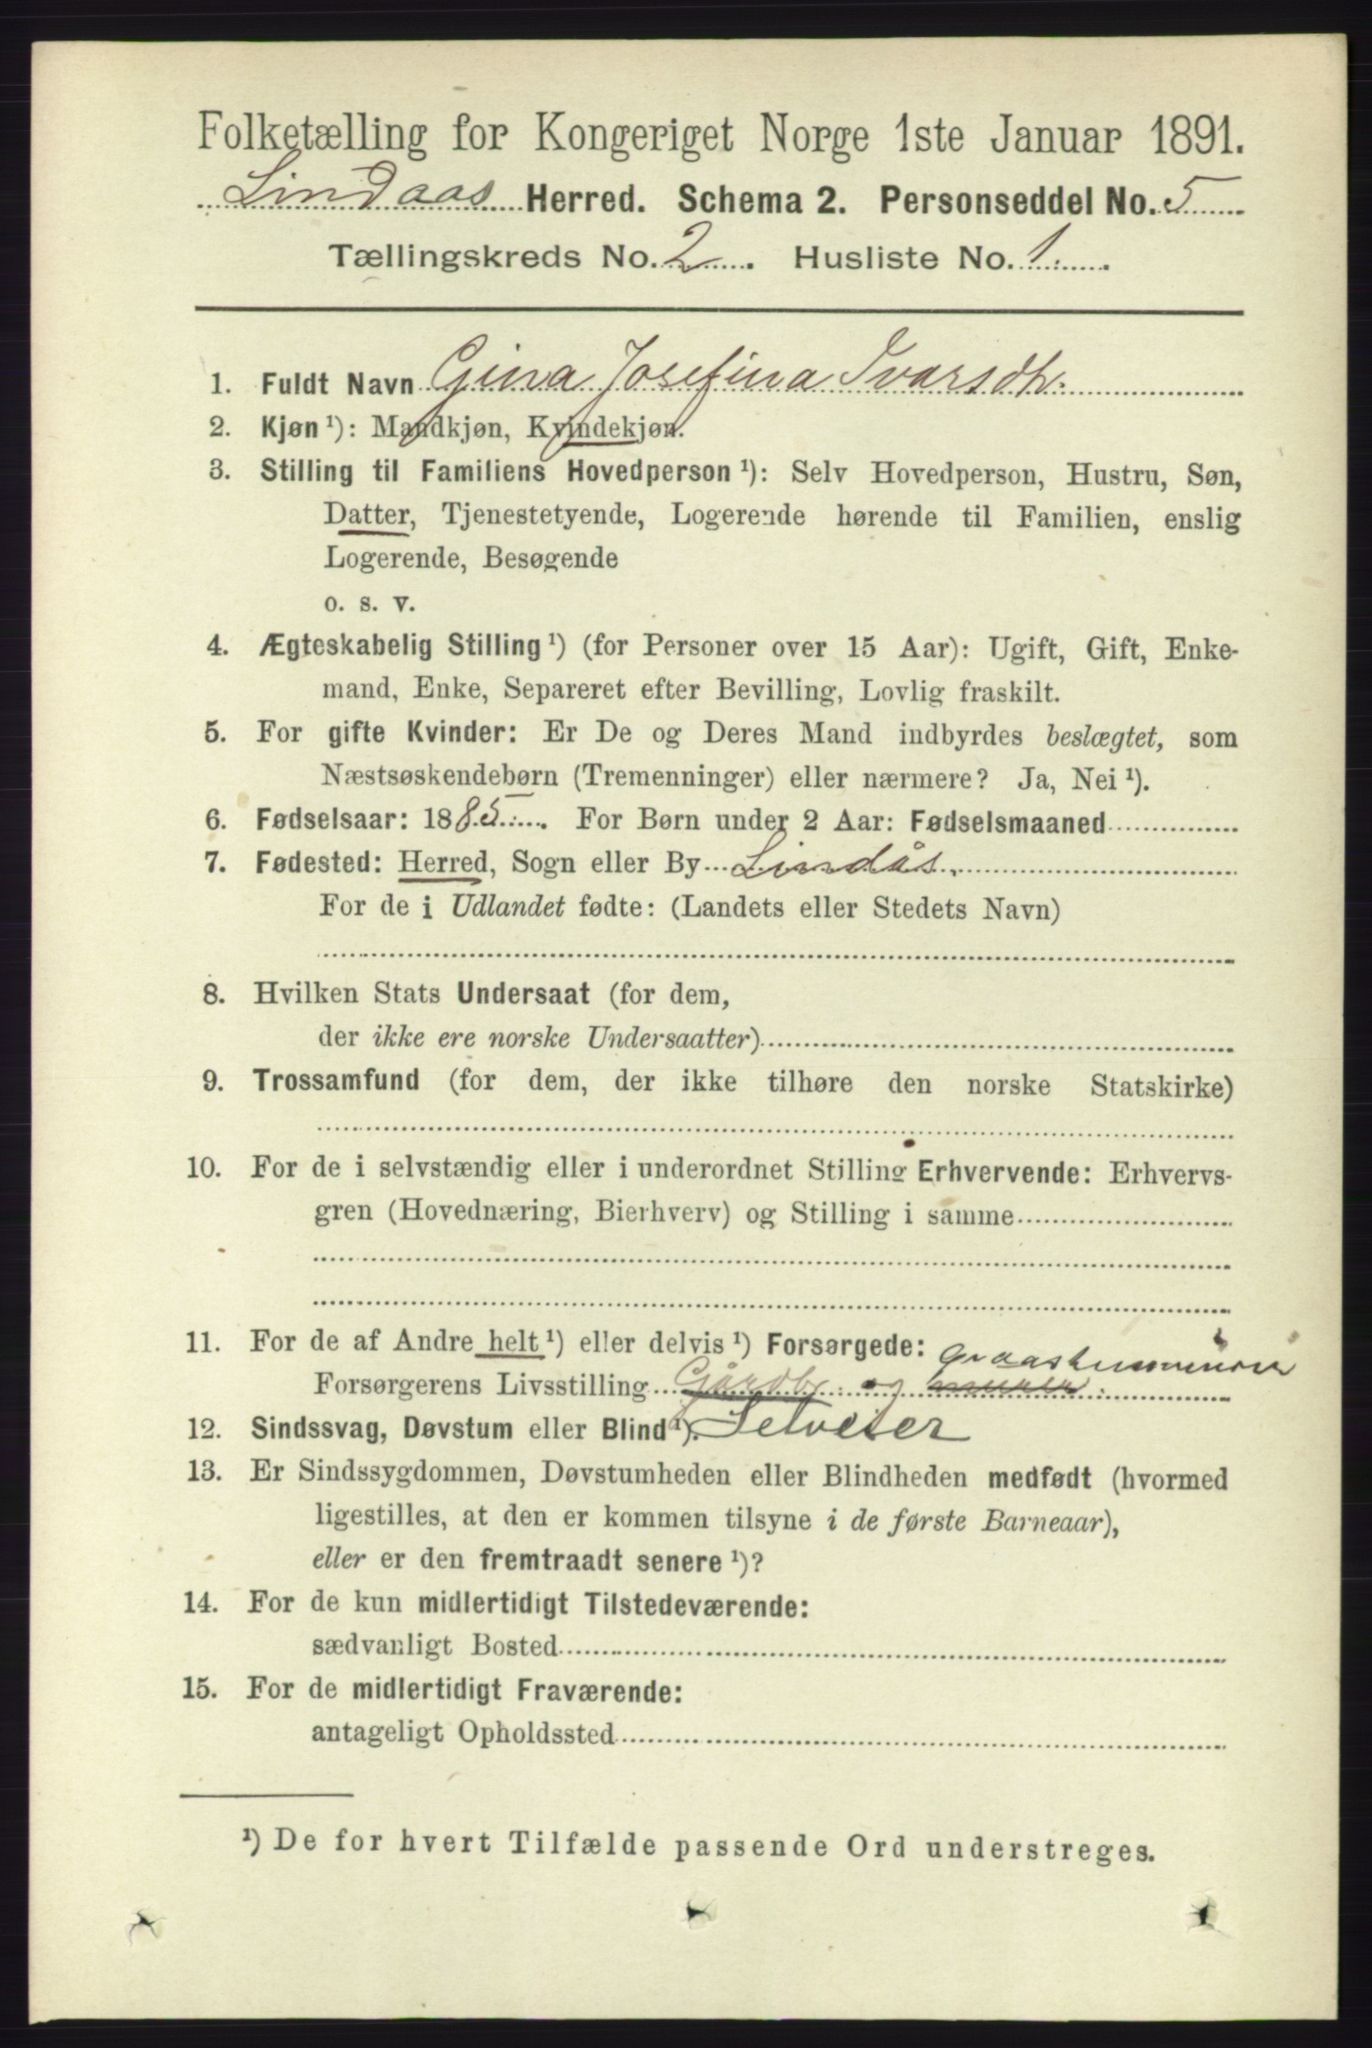 Folketælling for Kongeriget Norge 1ste Januar 1891.
Lindaas Herred. Schema 2. Personseddel No. 5
Tællingskreds No. 2. Husliste No. 1.
1. Fuldt Navn Gina Josefina Ivarsdtr.
2. Kjøn ¹): Mandkjøn, Kvindekjøn.
3. Stilling til Familiens Hovedperson ¹): Selv Hovedperson, Hustru, Søn,
Datter, Tjenestetyende, Logerende hørende til Familien, enslig
Logerende, Besøgende
o. s. v.
4. Ægteskabelig Stilling ¹) (for Personer over 15 Aar): Ugift, Gift, Enke-
mand, Enke, Separeret efter Bevilling, Lovlig fraskilt.
5. For gifte Kvinder: Er De og Deres Mand indbyrdes beslægtet, som
Næstsøskendebørn (Tremenninger) eller nærmere? Ja, Nei ¹).
6. Fødselsaar: 1885. For Børn under 2 Aar: Fødselsmaaned
7. Fødested: Herred, Sogn eller By Lindås.
For de i Udlandet fødte: (Landets eller Stedets Navn)
8. Hvilken Stats Undersaat (for dem,
der ikke ere norske Undersaatter)
9. Trossamfund (for dem, der ikke tilhøre den norske Statskirke)
10. For de i selvstændig eller i underordnet Stilling Erhvervende: Erhvervs-
gren (Hovednæring, Bierhverv) og Stilling i samme
11. For de af Andre helt ¹) eller delvis ¹) Forsørgede:
Forsørgerens Livsstilling Gårdbr. og murer.
Selveier
12. Sindssvag, Døvstum eller Blind ¹).
13. Er Sindssygdommen, Døvstumheden eller Blindheden medfødt (hvormed
ligestilles, at den er kommen tilsyne i de første Barneaar),
eller er den fremtraadt senere ¹)?
14. For de kun midlertidigt Tilstedeværende:
sædvanligt Bosted
15. For de midlertidigt Fraværende:
antageligt Opholdssted
¹) De for hvert Tilfælde passende Ord understreges.